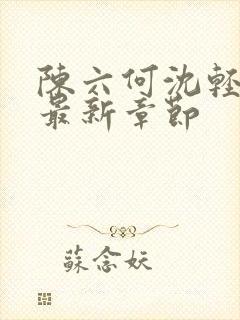 陳六何沈輕
最新章節
蘇念妖